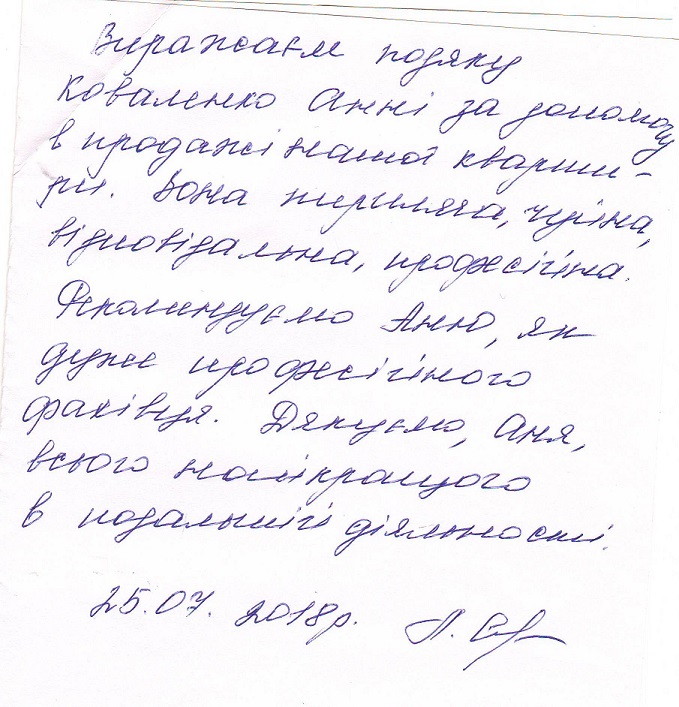 Виражаєм подяку
Коваленко Анні за допомогу
в продажі нашої кварти-
ри. Вона терпляча, чуйна,
відповідальна, професійна.
Рекомендуємо Аню, як
дуже професійного
фахівця. Дякуємо, Аня,
всього найкращого
в подальшій діяльності.
25.07. 2018р.